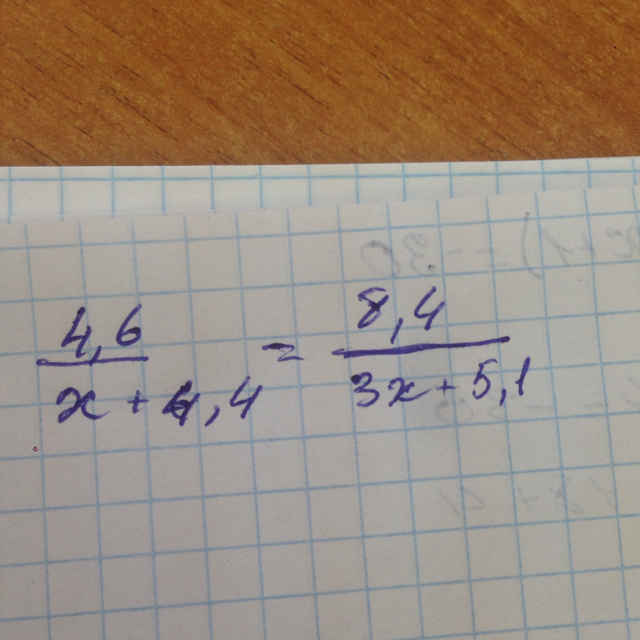 4,6 / x + 4,4 = 8,4 / 3x + 5,1